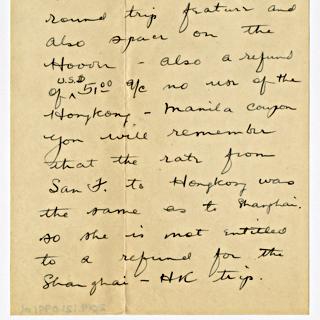 round trip feature and
also space on the
Hoover - also a refund
of U.S.D 51.00 a/c no use of the
Hongkong - Manila coupon
You will remember
that the rate from
San F. to Hongkong was
the same as to Shanghai.
so she is not entitled
to a refund for the
Shanghai - HK trip.